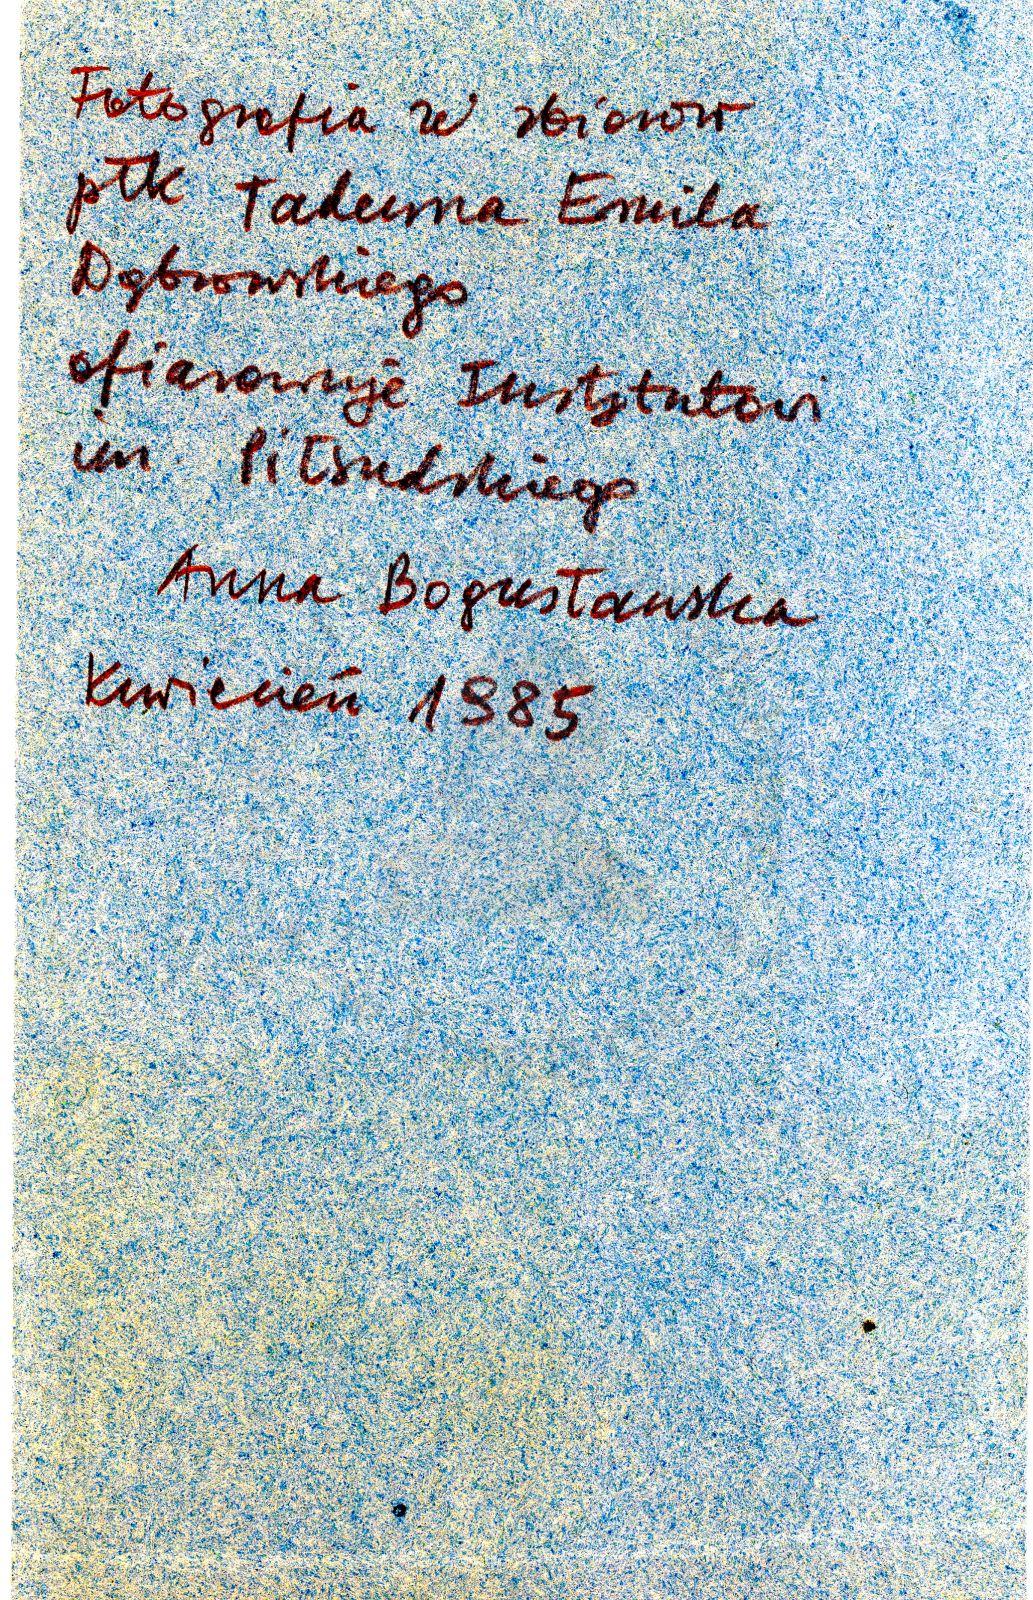 Fotografia ze zbiorów
płk Tadeusza Emila
Dąbrowskiego
ofiarowuję Instytutowi
im Piłsudskiego
Anna Bogusławska
Kwiecień 1985